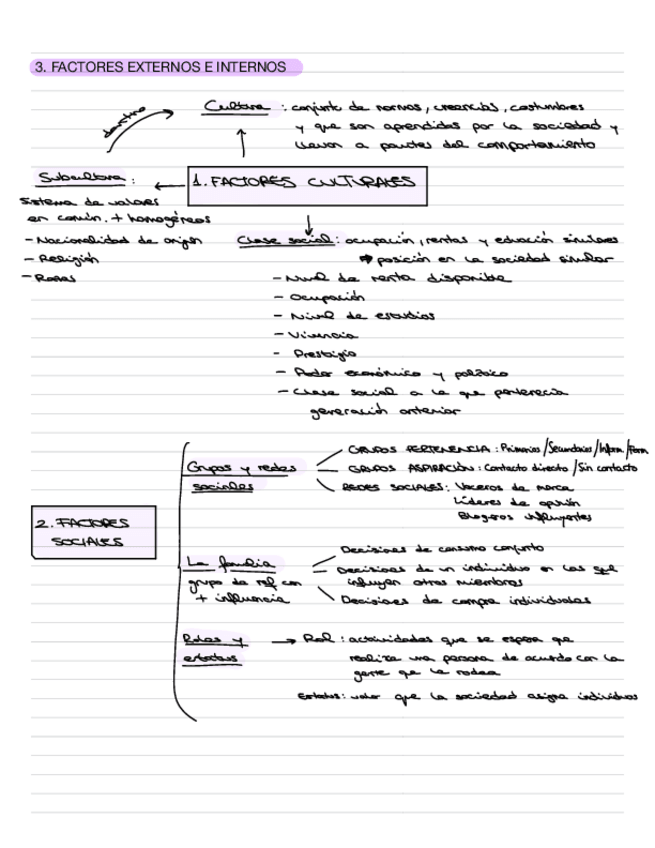 3. FACTORES EXTERNOS E INTERNOS
Cultura : conjunto de normas, creencias, costumbres
y que son aprendidas por la sociedad y
llevan a pautas del comportamiento
dentro
1. FACTORES CULTURALES
Subcultura :
Sistema de valores
en común. + homogéneos
- Nacionalidad de origen
- Religión
- Razas
Clase social : ocupación, rentas y educación similares
posición en la sociedad similar
- Nivel de renta disponible
- Ocupación
- Nivel de estudios
- Vivencia
- Prestigio
- Poder económico y político
- Clase social a la que pertenecía
generación anterior
2. FACTORES
SOCIALES
Grupos y redes
sociales
GRUPOS PERTENENCIA : Primarios / Secundarios / Inform / Form
GRUPOS ASPIRACIÓN : Contacto directo / Sin contacto
REDES SOCIALES : Voceros de marca
Líderes de opinión
Blogeros influyentes
La familia
grupo de ref con
+ influencia
Decisiones de consumo conjunto
Decisiones de un individuo en las que
influyen otros miembros
Decisiones de compra individuales
Roles y
estatus
Rol : actividades que se espera que
realize una persona de acuerdo con la
gente que le rodea
Estatus : valor que la sociedad asigna individuos